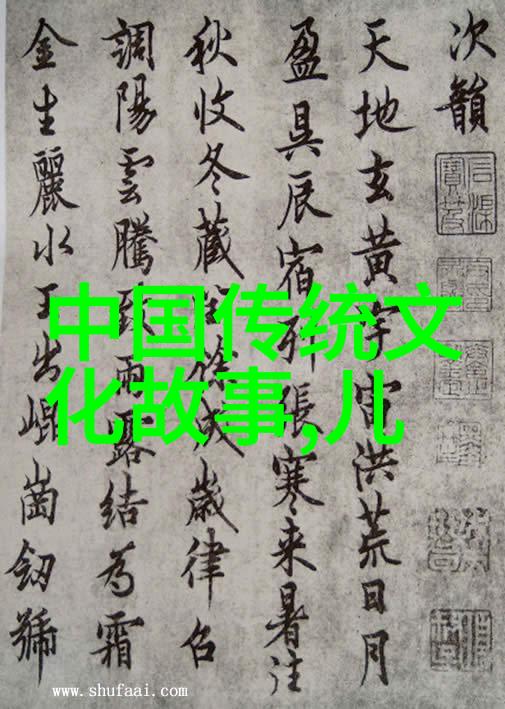 次韻
天地玄黃宇宙洪荒日月
盈昃辰宿列張寒来暑往
秋收冬藏閏餘成歲律召
調陽雲騰致雨露結為霜
金生麗水玉出崐崗號
中国传统文
化故事,儿
www.shufaai.com